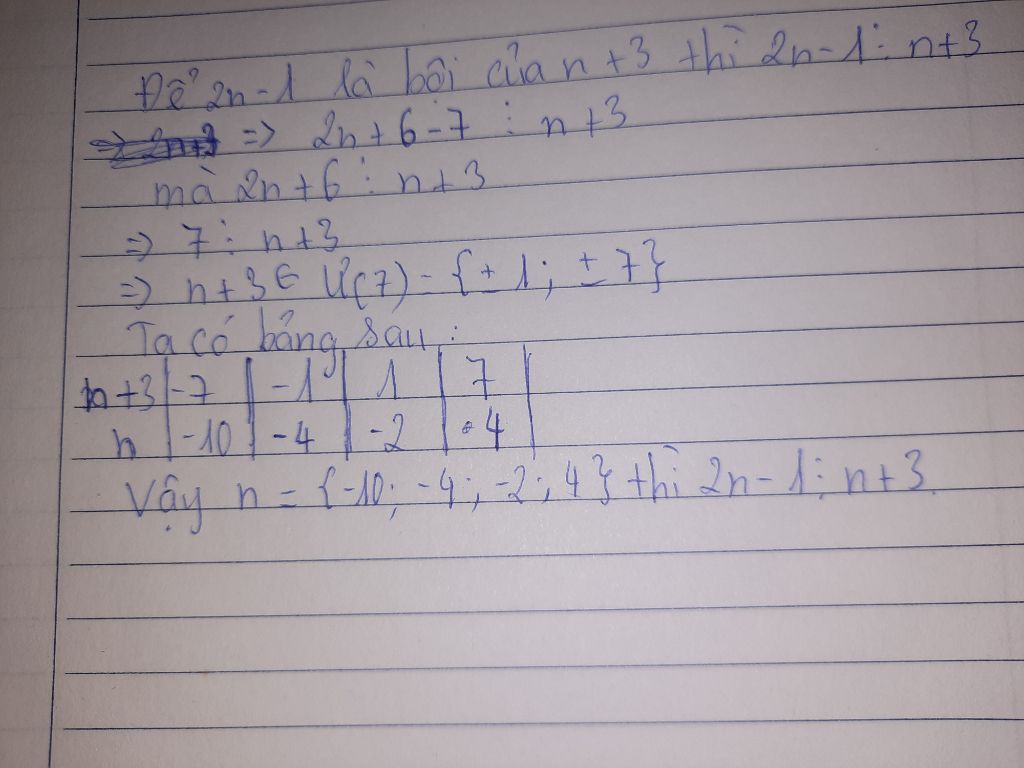 Để 2n-1 là bôi của n+3 thì 2n-1 ⋮ n+3
=> 2n+6-7 ⋮ n+3
mà 2n+6 ⋮ n+3
=> 7 ⋮ n+3
=> n+3 ∈ Ư(7) = {±1; ±7}
Ta có bảng sau:
n+3 | -7 | -1 | 1 | 7 |
n | -10 | -4 | -2 | 4 |
Vậy n = {-10; -4; -2; 4} thì 2n-1 ⋮ n+3.